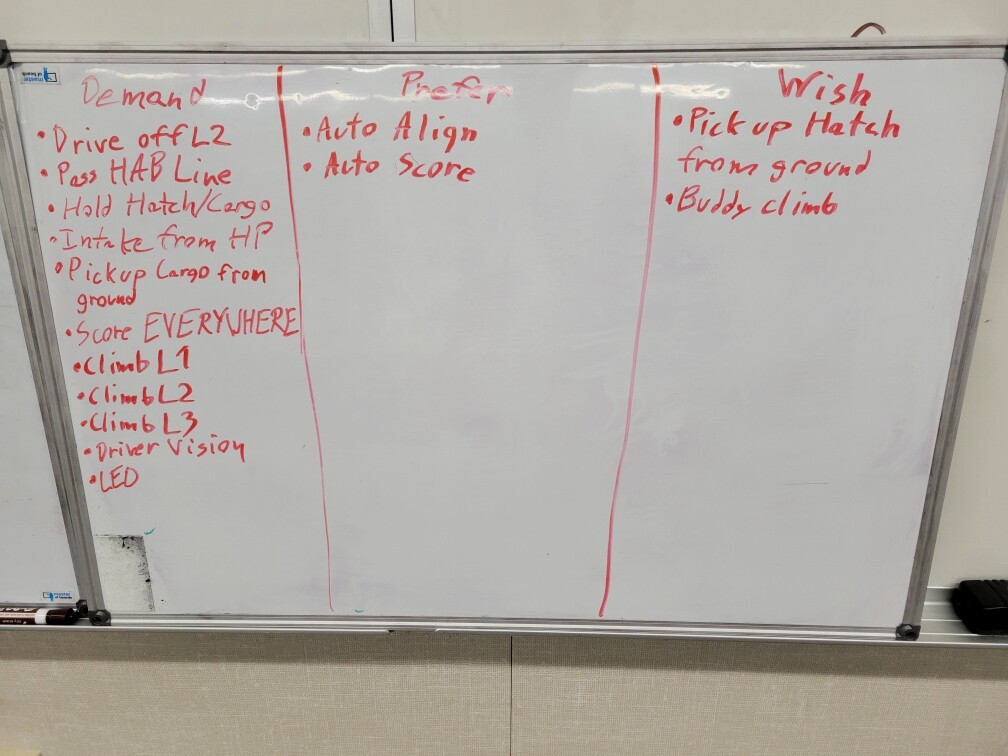 Demand
• Drive off L2
• Pass HAB Line
• Hold Hatch/Cargo
• Intake from HP
• Pickup Cargo from
ground
• Score EVERYWHERE
• Climb L1
• Climb L2
• Climb L3
• Driver Vision
• LED
Prefer
• Auto Align
• Auto Score
Wish
• Pick up Hatch
from ground
• Buddy climb
master
of boards
master
of boards